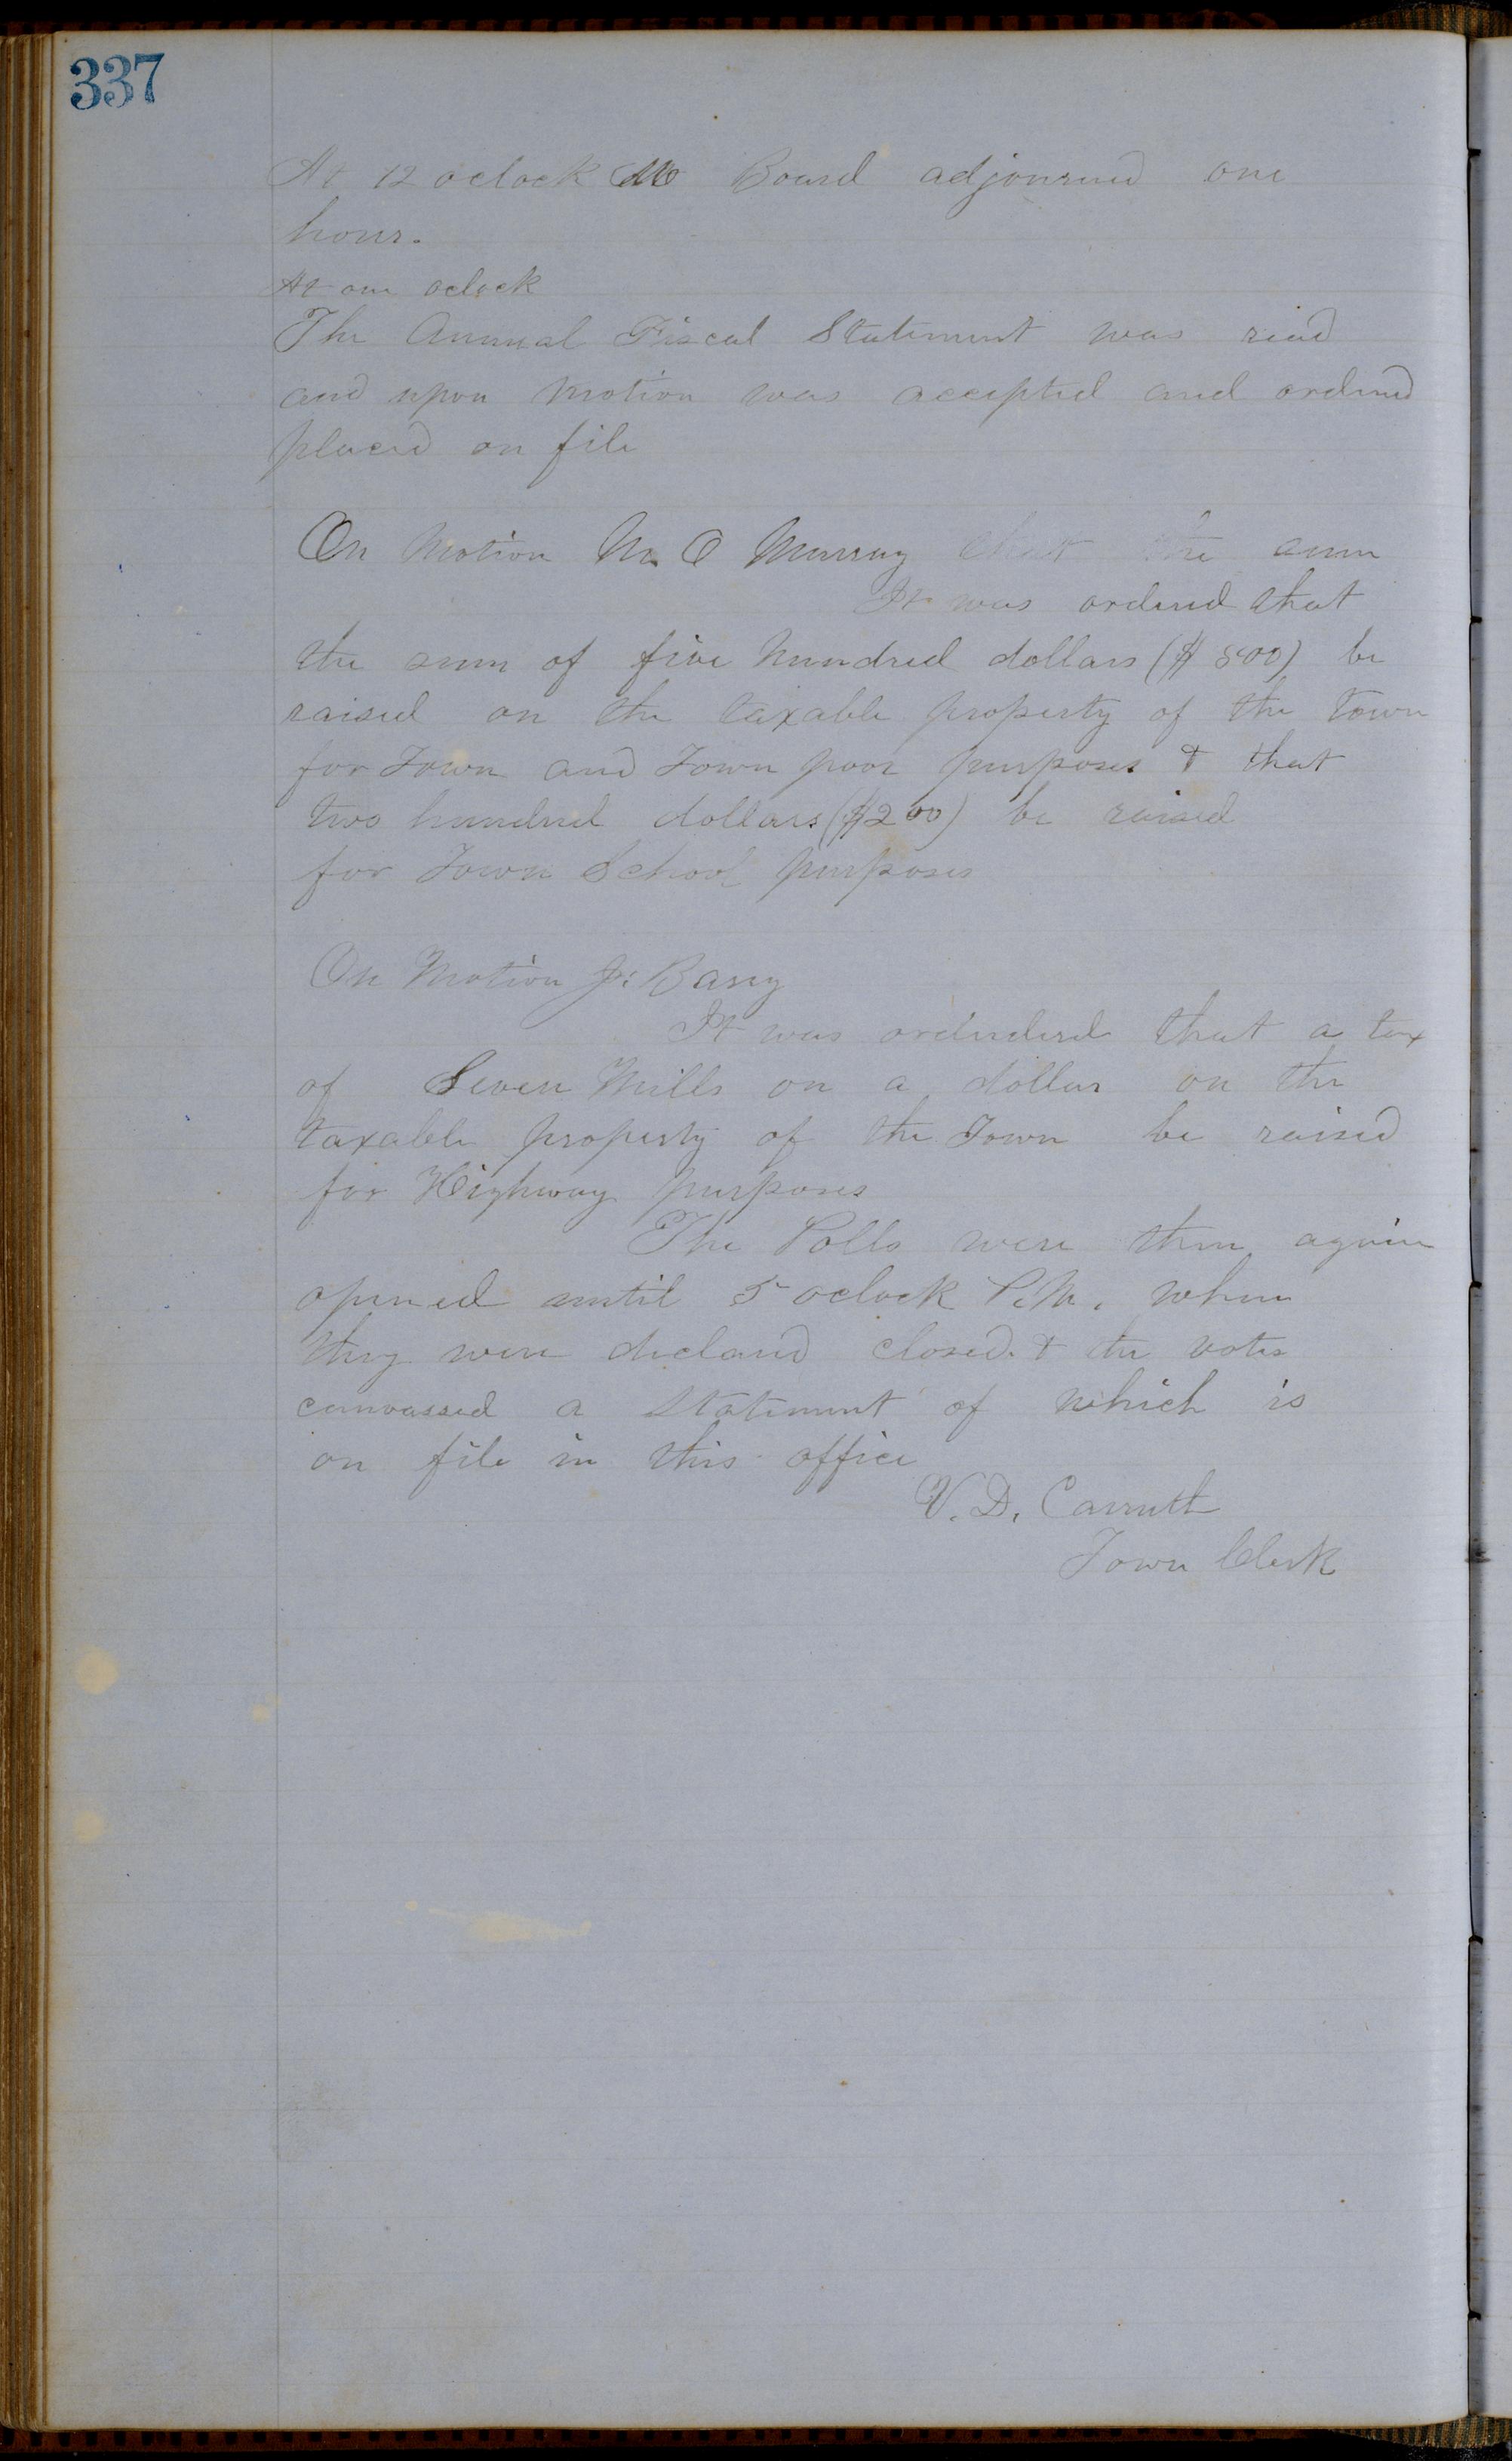 337
At 12 oclock M Board adjourned one
hour.
At one oclock
The Annual Fiscal Statement was read
and upon motion was accepted and ordered
placed on file
On Motion M. O Murray that the sum
It was ordered that
the sum of five hundred dollars ($500) be
raised on the taxable property of the town
for Town and Town poor purposes & that
two hundred dollars ($200) be raised
for Town School purposes
On Motion J. Basey
It was ordedered that a tax
of Seven Mills on a dollar on the
taxable property of the Town be raised
for Highway purposes
The Polls were then again
opened until 5 oclock P.M. when
they were declared closed & the votes
canvassed a statement of which is
on file in this office
V. D. Carruth
Town Clerk